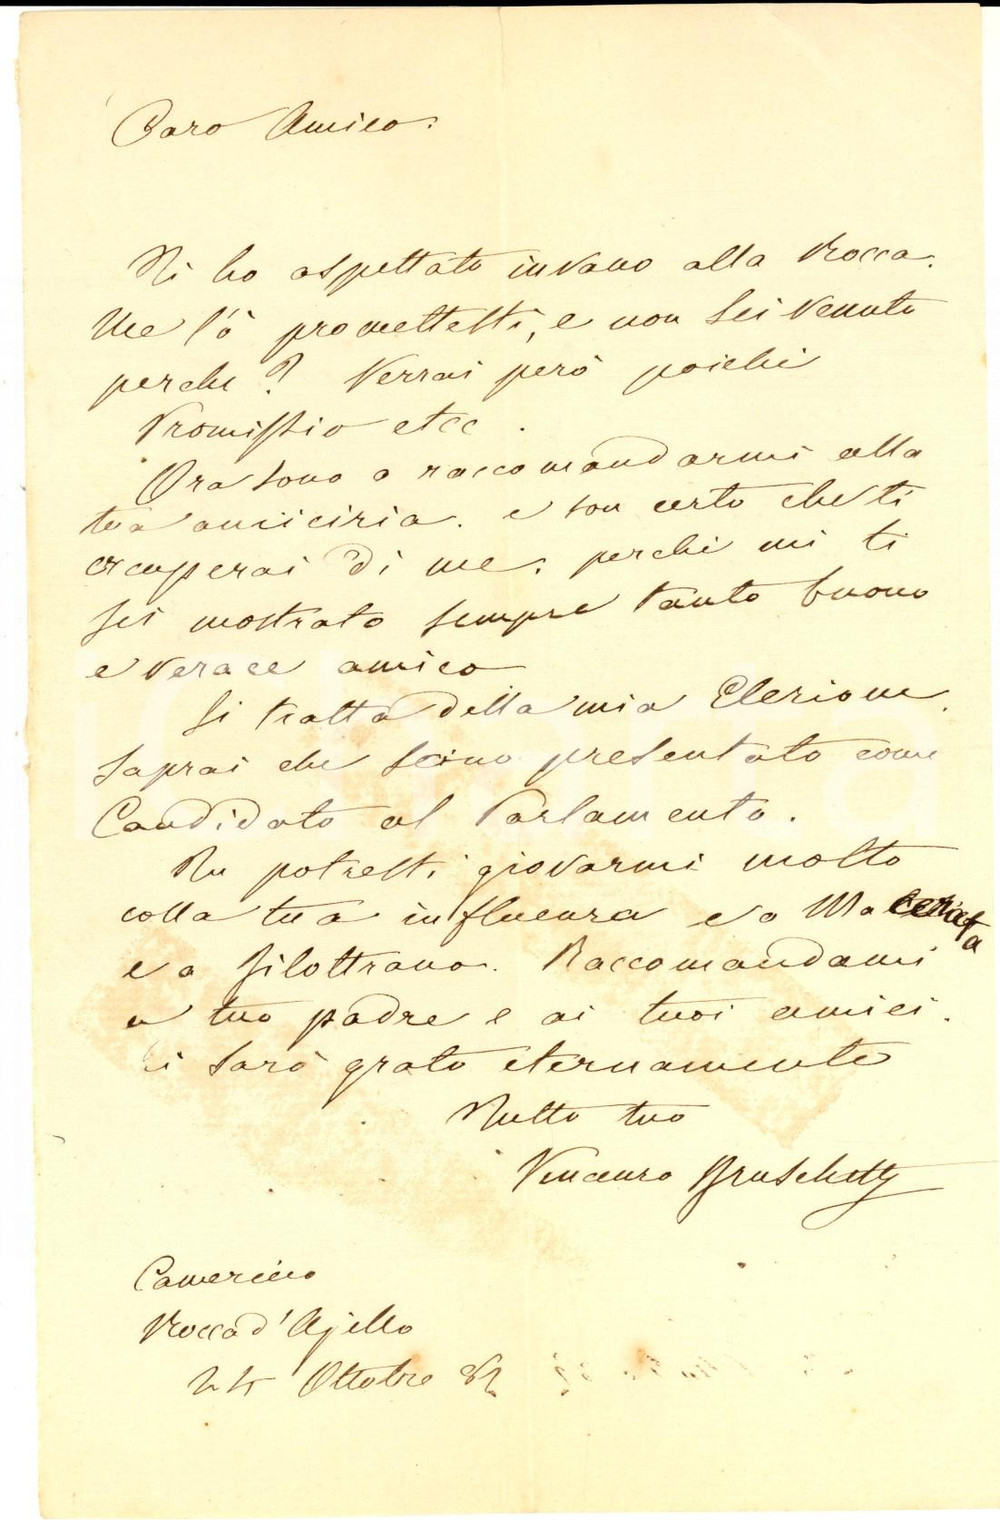 Caro Amico.
Ti ho aspettato invano alla Rocca.
Me l'ò promettesti, e non sei venuto
perche? Verrai però poichè
Promissio etcc.
Ora sono a raccomandarmi alla
tua amicizia. e son certo che ti
occuperai di me. perchè mi ti
sei mostrato sempre tanto buono
e verace amico
Si tratta della mia Elezione.
Saprai che sono presentato come
Candidato al Parlamento.
Tu potresti giovarmi molto
colla tua influenza e a Macerata
e a Filottrano. Raccomandami
a tuo padre e ai tuoi amici.
Ti sarò grato eternamente
Tutto tuo
Vincenzo Bruschetti
Camerino
Rocca d'Ajello
24 Ottobre 82